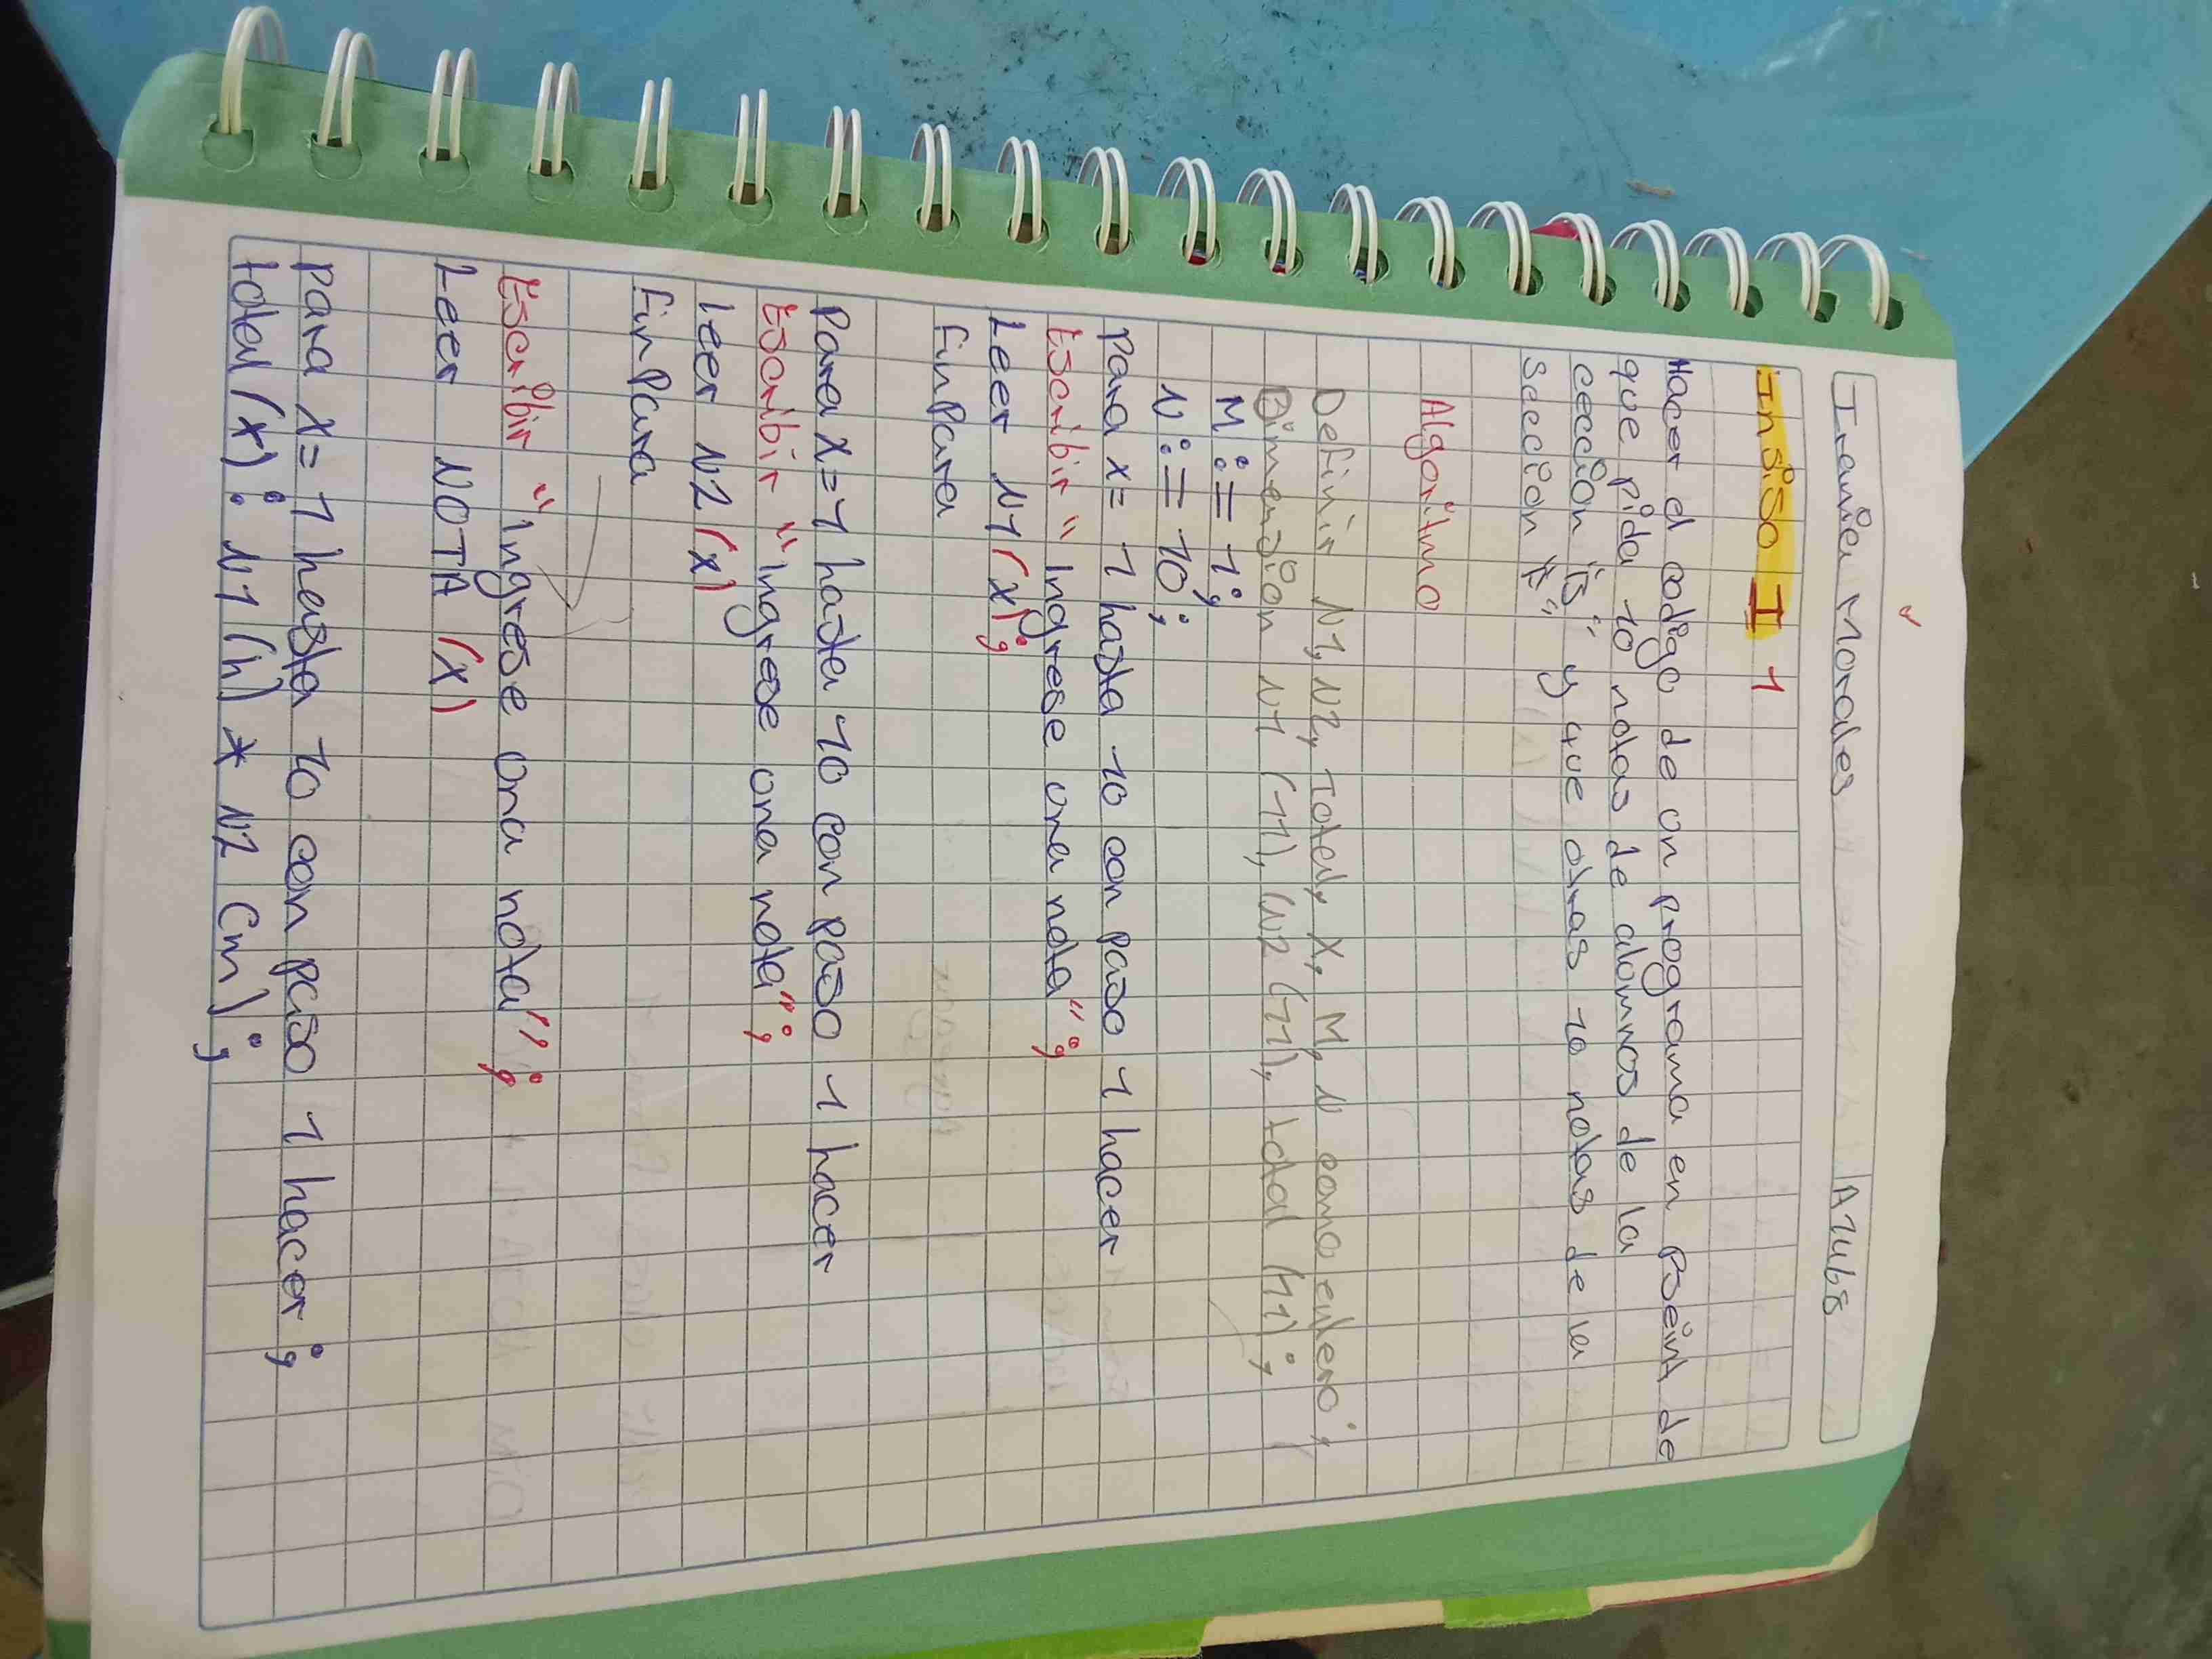 Tania Morales Azul8
Insiso I 1
Hacer el codigo de on programa en pseint de
que pida 10 notas de alomnos de la
cección "B" y que otras 10 notas de la
Sección "F"
Algoritmo
Definir N1, N2, Total, X, M, N como entero;
Dimension N1 (11), N2 (11), total (11);
M := 1;
N := 10;
Para x= 1 hasta 10 con paso 1 hacer
Escribir "Ingrese ona nota";
Leer N1 (x);
FinPara
Para x=1 hasta 10 con paso 1 hacer
Escribir "Ingrese ona nota";
Leer N2 (x)
FinPara
Escribir "Ingrese ona nota";
Leer NOTA (x)
Para x=1 hasta 10 con paso 1 hacer;
total (x): N1 (n) * N2 (m);